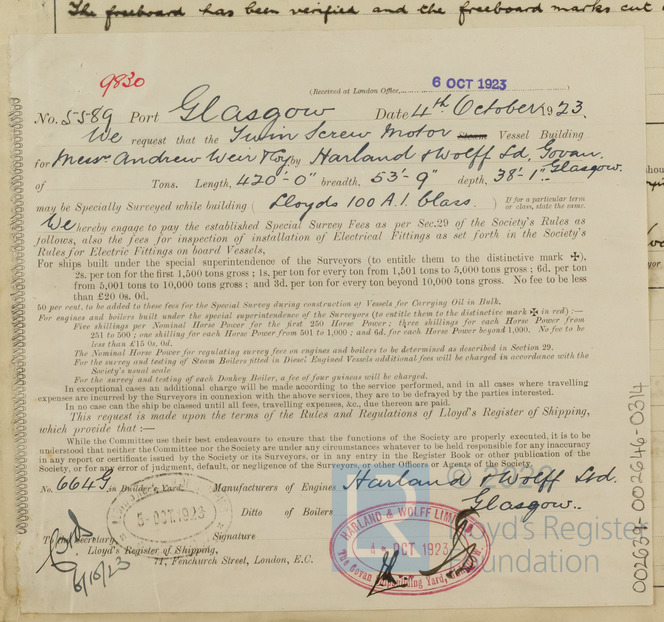 The freeboard has been verified and the freeboard marks cut
9830
(Received at London Office, 6 OCT 1923)
No. 5589 Port Glasgow Date 4th October 1923.
We request that the Twin Screw Motor Steam Vessel Building
for Messrs Andrew Weir & Co by Harland & Wolff Ld, Govan, Glasgow.
of Tons. Length, 420'-0" breadth, 53'-9" depth, 38'-1"
may be Specially Surveyed while building ( Lloyds 100 A.1. Class. ) If for a particular term or class, state the same.
We hereby engage to pay the established Special Survey Fees as per Sec.29 of the Society's Rules as
follows, also the fees for inspection of installation of Electrical Fittings as set forth in the Society's
Rules for Electric Fittings on board Vessels.
For ships built under the special superintendence of the Surveyors (to entitle them to the distinctive mark ✠),
2s. per ton for the first 1,500 tons gross; 1s. per ton for every ton from 1,501 tons to 5,000 tons gross; 6d. per ton
from 5,001 tons to 10,000 tons gross; and 3d. per ton for every ton beyond 10,000 tons gross. No fee to be less
than £20 0s. 0d.
50 per cent. to be added to these fees for the Special Survey during construction of Vessels for Carrying Oil in Bulk.
For engines and boilers built under the special superintendence of the Surveyors (to entitle them to the distinctive mark ✠ in red) :—
Five shillings per Nominal Horse Power for the first 250 Horse Power; three shillings for each Horse Power from
251 to 500; one shilling for each Horse Power from 501 to 1,000; and 6d. for each Horse Power beyond 1,000. No fee to be
less than £15 0s. 0d.
The Nominal Horse Power for regulating survey fees on engines and boilers to be determined as described in Section 29.
For the survey and testing of Steam Boilers fitted in Diesel Engined Vessels additional fees will be charged in accordance with the
Society's usual scale
For the survey and testing of each Donkey Boiler, a fee of four guineas will be charged.
In exceptional cases an additional charge will be made according to the service performed, and in all cases where travelling
expenses are incurred by the Surveyors in connection with the above services, they are to be defrayed by the parties interested.
In no case can the ship be classed until all fees, travelling expenses, &c., due thereon are paid.
This request is made upon the terms of the Rules and Regulations of Lloyd's Register of Shipping,
which provide that :—
While the Committee use their best endeavours to ensure that the functions of the Society are properly executed, it is to be
understood that neither the Committee nor the Society are under any circumstances whatever to be held responsible for any inaccuracy
in any report or certificate issued by the Society or its Surveyors, or in any entry in the Register Book or other publication of the
Society, or for any error of judgment, default, or negligence of the Surveyors, or other Officers or Agents of the Society.
No. 664G in Builder's Yard. Manufacturers of Engines Harland & Wolff Ltd.
Ditto of Boilers Glasgow.
5-OCT 1923
Signature
HARLAND & WOLFF LIMITED
4 - OCT 1923
The Govan Shipbuilding Yard,
To the Secretary,
Lloyd's Register of Shipping,
71, Fenchurch Street, London, E.C.
6/10/23
Lloyd's Register
Foundation
002639-002646-0314